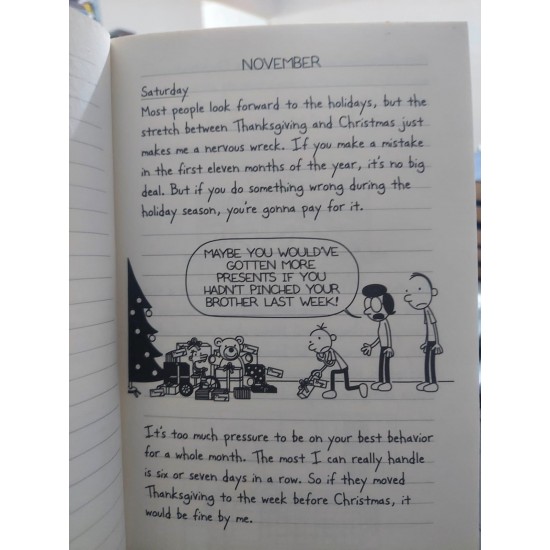 NOVEMBER
Saturday
Most people look forward to the holidays, but the
stretch between Thanksgiving and Christmas just
makes me a nervous wreck. If you make a mistake
in the first eleven months of the year, it's no big
deal. But if you do something wrong during the
holiday season, you're gonna pay for it.
MAYBE YOU WOULD'VE
GOTTEN MORE
PRESENTS IF YOU
HADN'T PINCHED YOUR
BROTHER LAST WEEK!
It's too much pressure to be on your best behavior
for a whole month. The most I can really handle
is six or seven days in a row. So if they moved
Thanksgiving to the week before Christmas, it
would be fine by me.